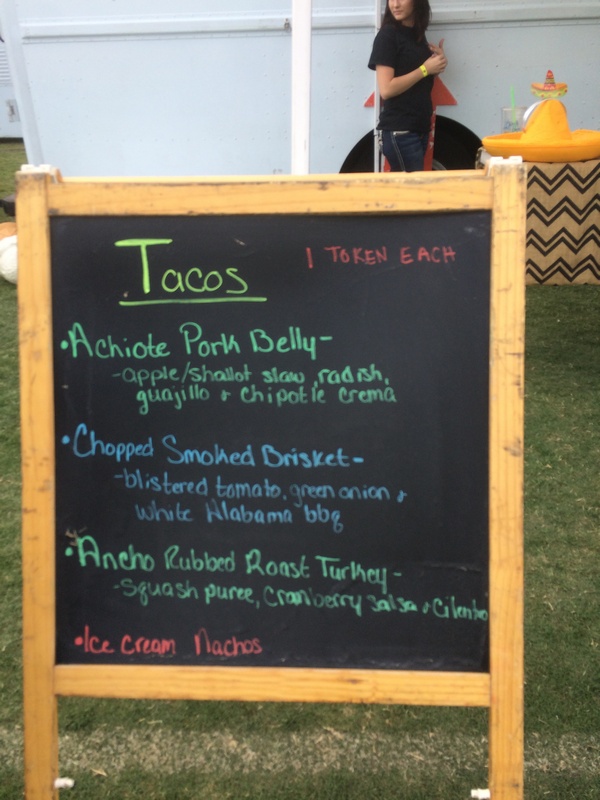 Tacos 1 TOKEN EACH
•Achiote Pork Belly-
-apple/shallot slaw, radish,
guajillo + chipotle crema
•Chopped Smoked Brisket-
-blistered tomato, green onion +
white Alabama bbq
•Ancho Rubbed Roast Turkey-
-Squash puree, Cranberry salsa + Cilantro
•Ice Cream Nachos